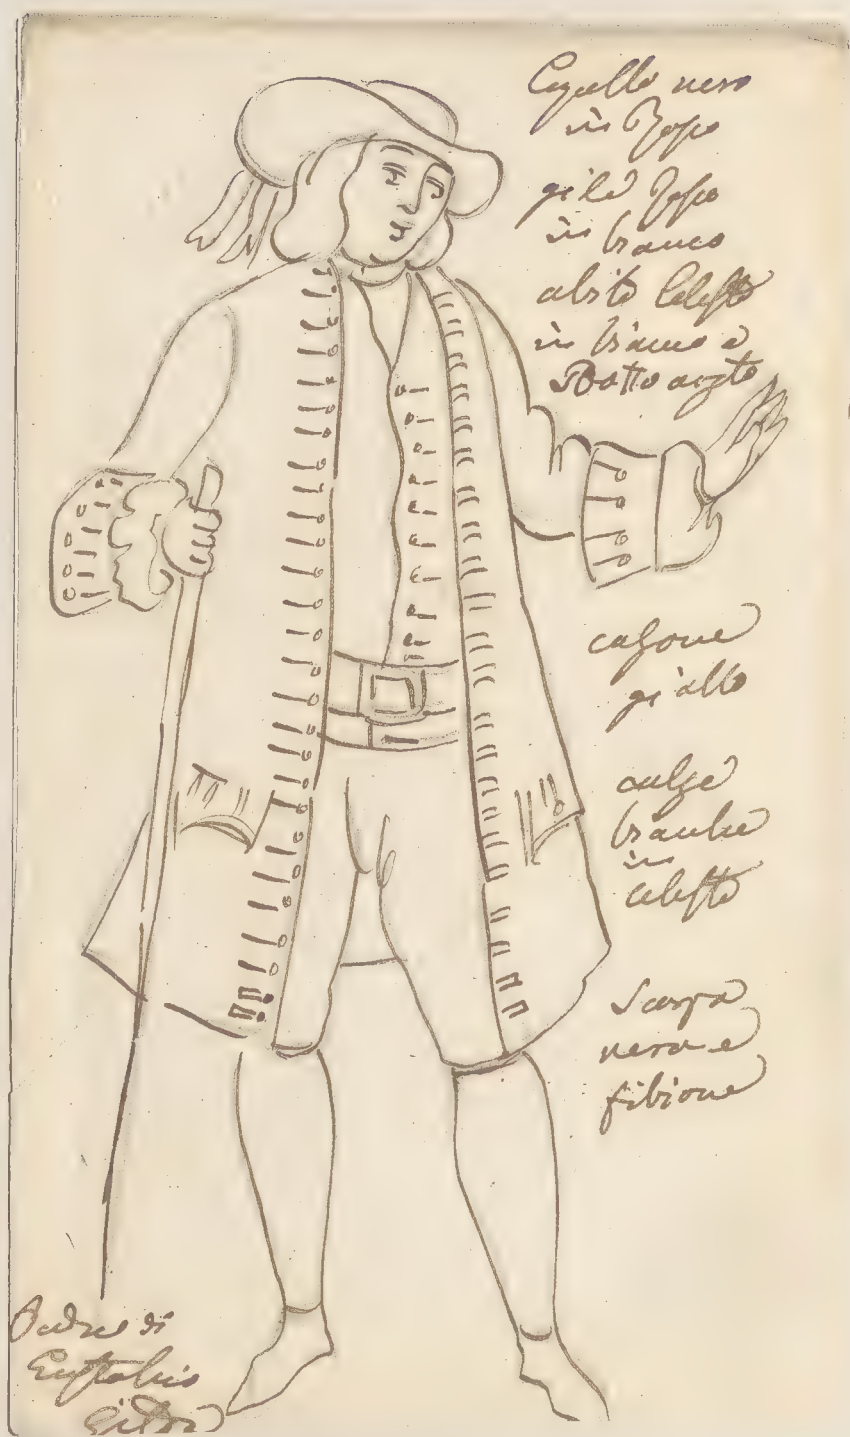 Capello nero
in Rosso
gilè Rosso
in bianco
abito Celeste
in bianco e
Botto
calzone
giallo
calze
bianche
in
celeste
Scarpa
nera e
fibione
Padre di
Eustachio